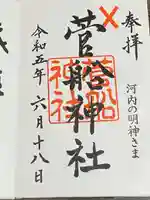 奉拝
河内の明神さま
菅船神社
菅船
神社
令和五年六月十八日